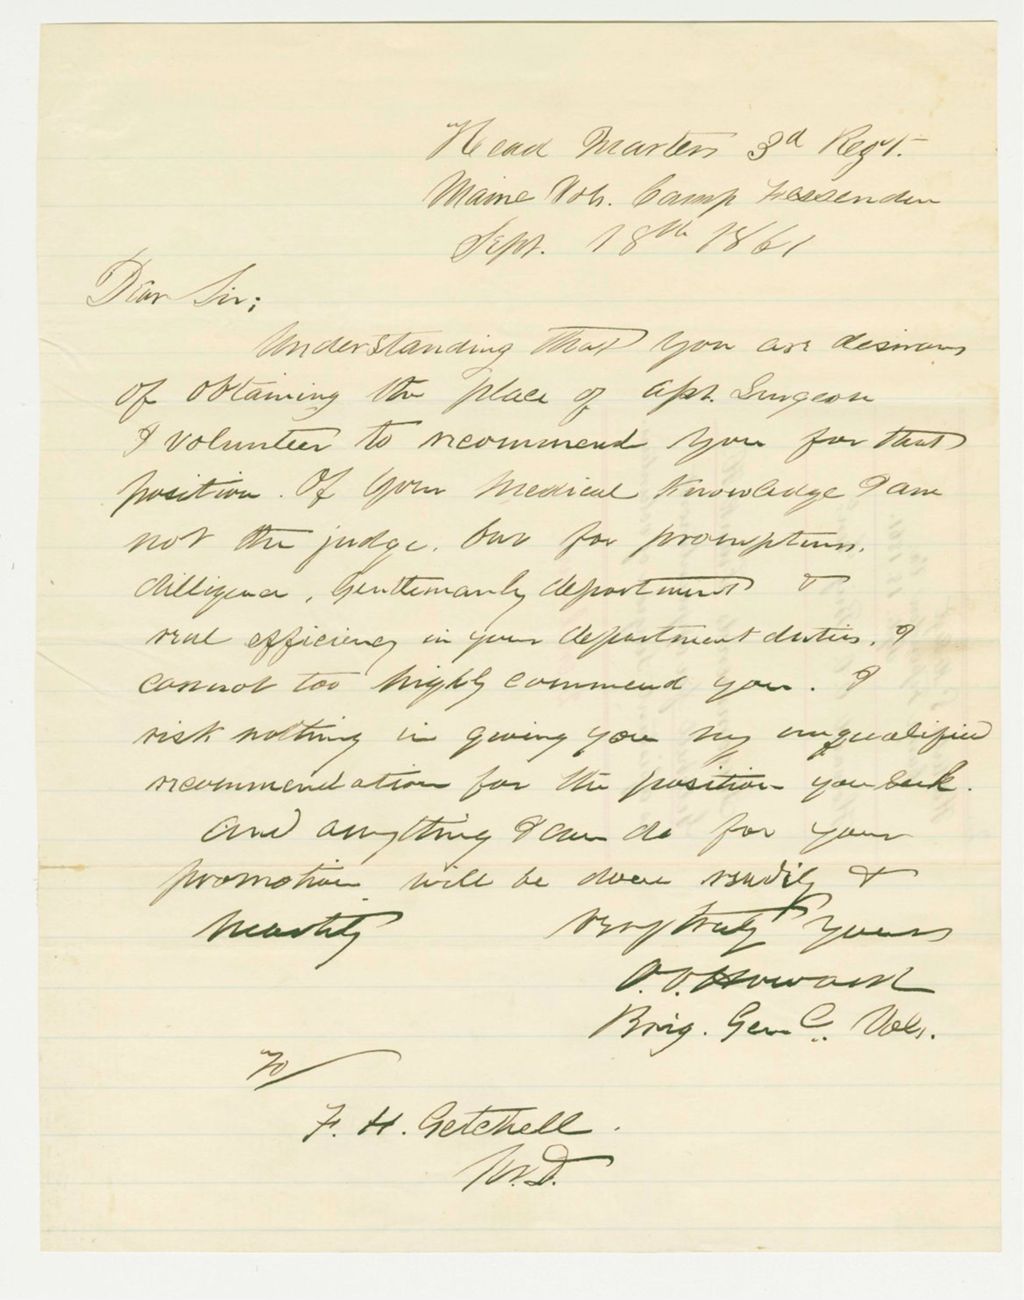 Head Quarters 3d Regt.
Maine Vols. Camp Fessenden
Sept. 18th 1861
Dear Sir;
Understanding that you are desirous
of obtaining the place of Asst. Surgeon
I volunteer to recommend you for that
position. Of your medical knowledge I am
not the judge. but for promptness,
dilligence, gentlemanly department &
real efficiency in your department duties, I
cannot too highly commend you. I
risk nothing in giving you my unqualified
recommendation for the position you seek.
And anything I can do for your
promotion will be done readily &
heartily Very truly yours
O. O. Howard
Brig. Gen Vols.
To
F. H. Getchell.
M.D.